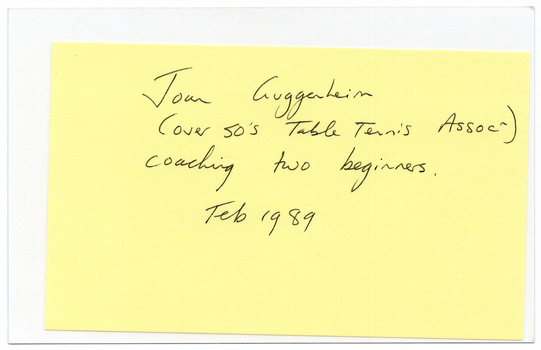 Joan Guggenheim
(over 50's Table Tennis Assoc~)
coaching two beginners.
Feb 1989